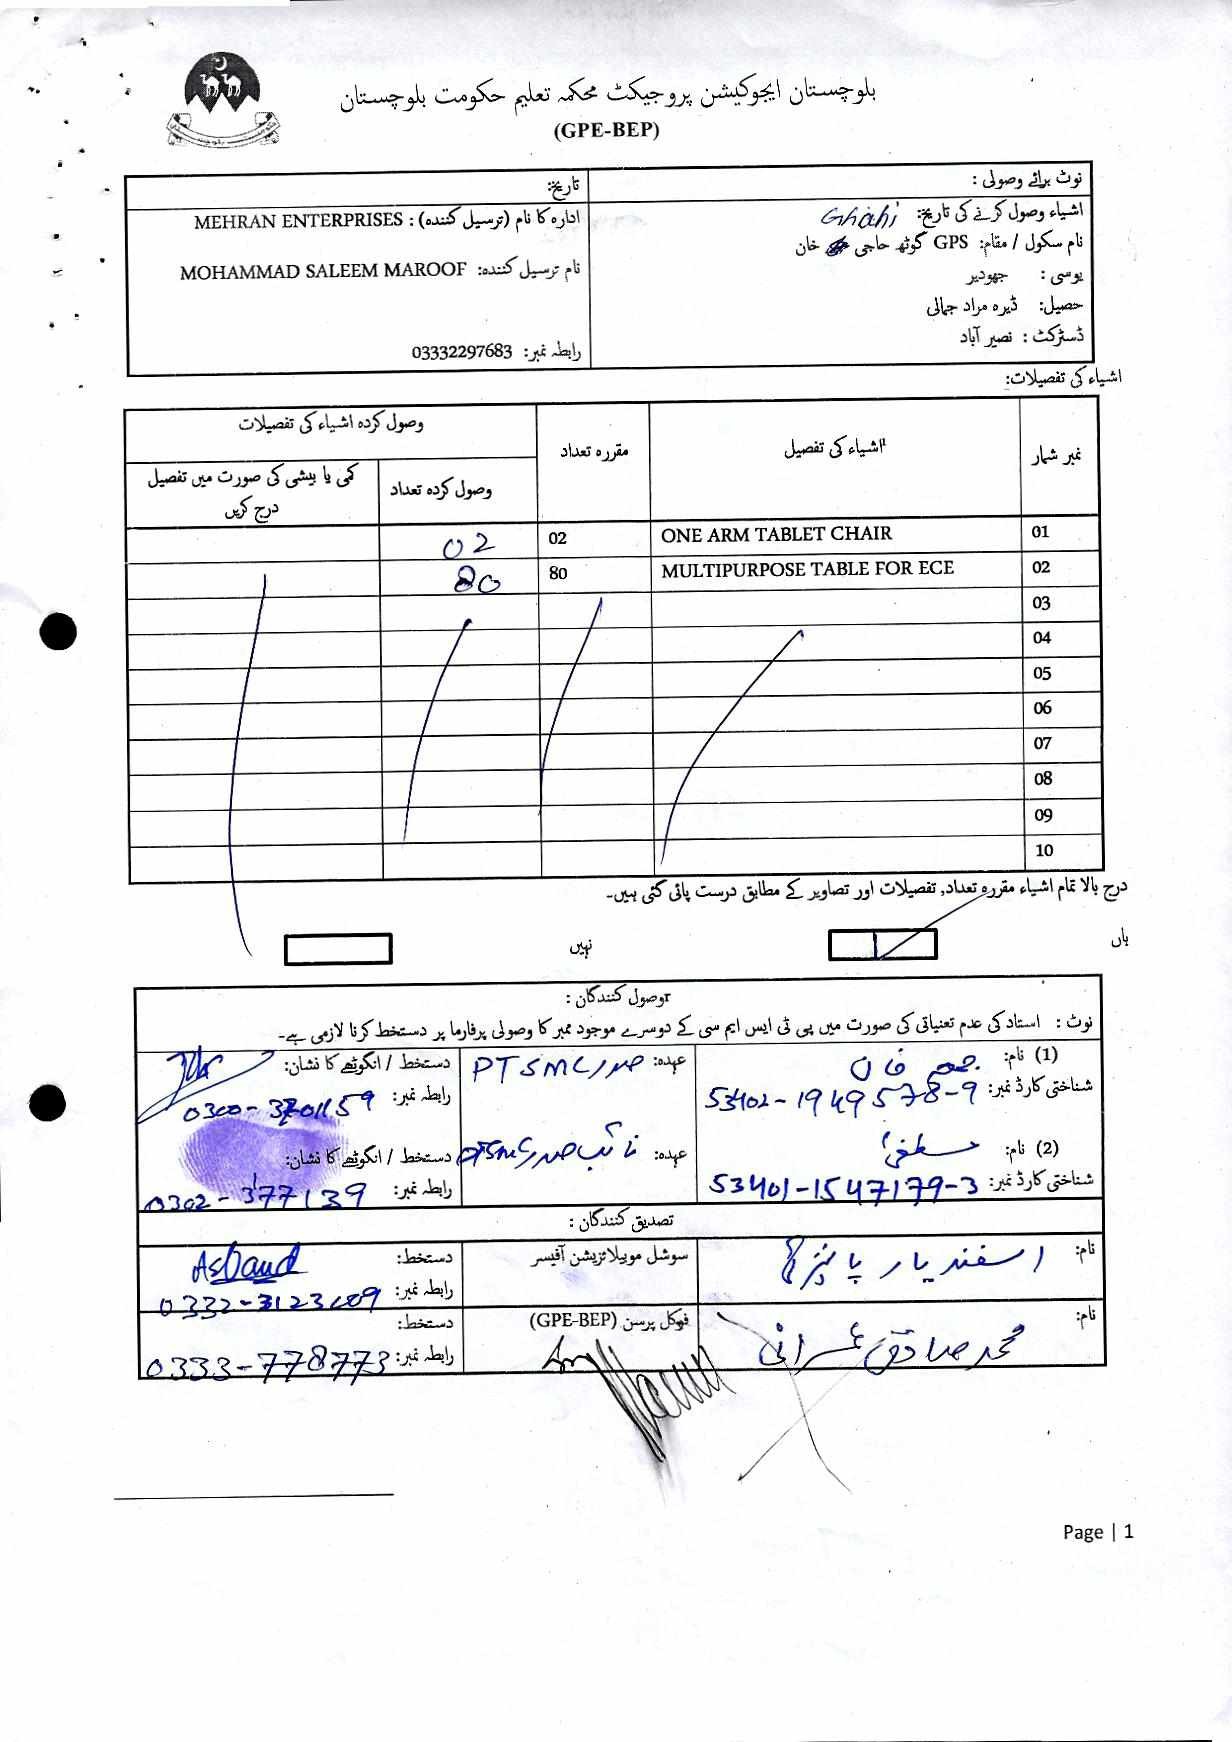 بلوچستان ایجوکیشن پروجیکٹ محکمہ تعلیم حکومت بلوچستان
(GPE-BEP)
نوٹ برائے وصولی :
اشیاء وصول کرنے کی تاریخ: Ghahi
نام سکول / مقام: GPS گوٹھ حاجی خان
یوسی : جھودیر
حصیل: ڈیرہ مراد جمالی
ڈسٹرکٹ : نصیر آباد
تاریخ:
ادارہ کا نام (ترسیل کنندہ) : MEHRAN ENTERPRISES
نام ترسیل کنندہ: MOHAMMAD SALEEM MAROOF
رابطہ نمبر: 03332297683
اشیاء کی تفصیلات:
نمبر شمار اشیاء کی تفصیل مقررہ تعداد وصول کردہ اشیاء کی تفصیلات
وصول کردہ تعداد کمی یا بیشی کی صورت میں تفصیل درج کریں
01 ONE ARM TABLET CHAIR 02 02
02 MULTIPURPOSE TABLE FOR ECE 80 80
03
04
05
06
07
08
09
10
درج بالا تمام اشیاء مقررہ تعداد, تفصیلات اور تصاویر کے مطابق درست پائی گئی ہیں۔
ہاں نہیں
وصول کنندگان :
نوٹ : استاد کی عدم تعنیاتی کی صورت میں پی ٹی ایس ایم سی کے دوسرے موجود ممبر کا وصولی پرفارما پر دستخط کرنا لازمی ہے۔
(1) نام: خان عہدہ: صدر PTSMC دستخط / انگوٹھے کا نشان:
شناختی کارڈ نمبر: 53402-1949578-9 رابطہ نمبر: 0300-3701159
(2) نام: مصطفیٰ عہدہ: نائب صدر PTSMC دستخط / انگوٹھے کا نشان:
شناختی کارڈ نمبر: 53401-1547179-3 رابطہ نمبر: 0302-377139
تصدیق کنندگان :
نام: اسفند یار سوشل موبیلائزیشن آفیسر دستخط:
رابطہ نمبر: 0332-3123609
نام: محمد صادق عمرانی فوکل پرسن (GPE-BEP) دستخط:
رابطہ نمبر: 0333-778773
Page | 1